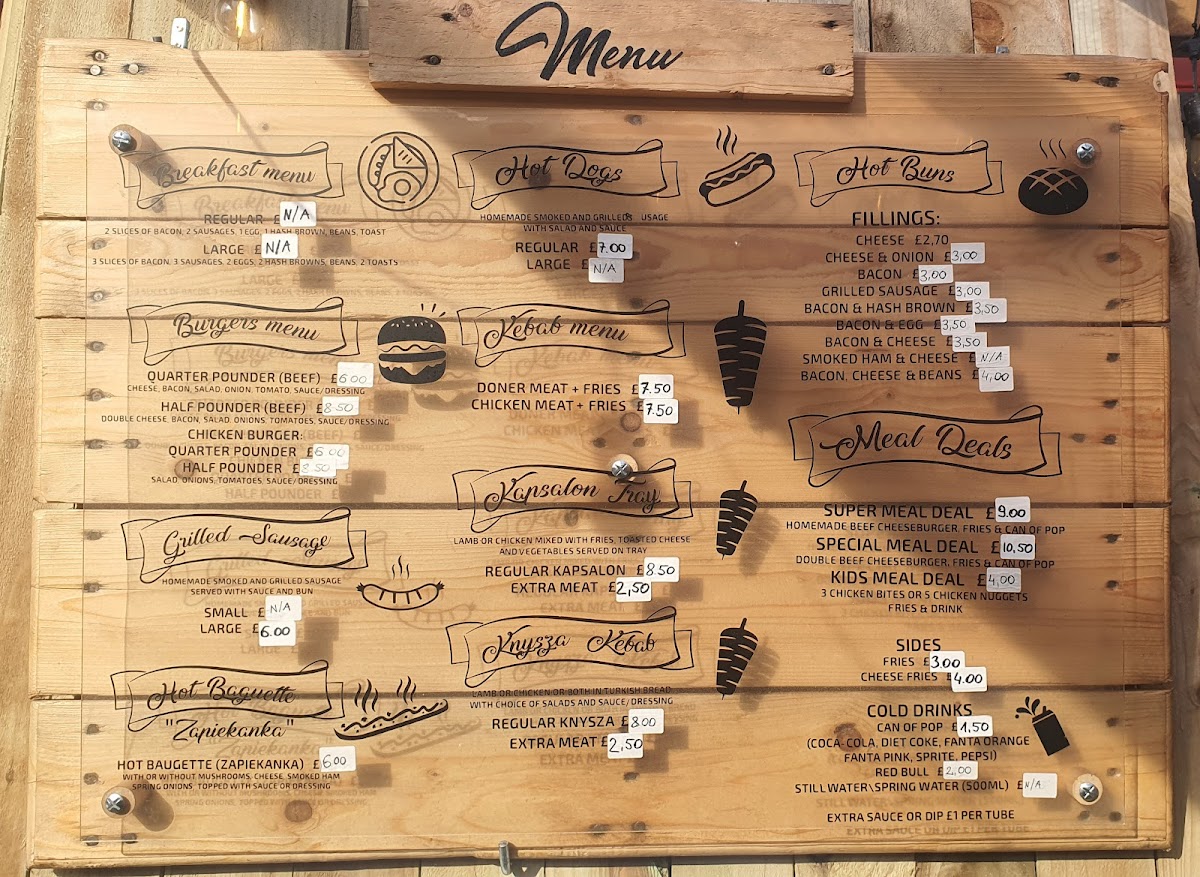 Menu
Breakfast menu
REGULAR £N/A
2 SLICES OF BACON, 2 SAUSAGES, 1 EGG, 1 HASH BROWN, BEANS, TOAST
LARGE £N/A
3 SLICES OF BACON, 3 SAUSAGES, 2 EGGS, 2 HASH BROWNS, BEANS, 2 TOASTS
Burgers menu
QUARTER POUNDER (BEEF) £6.00
CHEESE, BACON, SALAD, ONION, TOMATO, SAUCE/DRESSING
HALF POUNDER (BEEF) £8.50
DOUBLE CHEESE, BACON, SALAD, ONIONS, TOMATOES, SAUCE/DRESSING
CHICKEN BURGER:
QUARTER POUNDER £6.00
HALF POUNDER £8.50
SALAD, ONIONS, TOMATOES, SAUCE/DRESSING
Grilled Sausage
HOMEMADE SMOKED AND GRILLED SAUSAGE
SERVED WITH SAUCE AND BUN
SMALL £N/A
LARGE £6.00
Hot Baguette
"Zapiekanka"
HOT BAUGETTE (ZAPIEKANKA) £6.00
WITH OR WITHOUT MUSHROOMS, CHEESE, SMOKED HAM
SPRING ONIONS, TOPPED WITH SAUCE OR DRESSING
Hot Dogs
HOMEMADE SMOKED AND GRILLED USAGE
WITH SALAD AND SAUCE
REGULAR £7.00
LARGE £N/A
Kebab menu
DONER MEAT + FRIES £7.50
CHICKEN MEAT + FRIES £7.50
Kapsalon Tray
LAMB OR CHICKEN MIXED WITH FRIES, TOASTED CHEESE
AND VEGETABLES SERVED ON TRAY
REGULAR KAPSALON £8.50
EXTRA MEAT £2,50
Knysza Kebab
LAMB OR CHICKEN OR BOTH IN TURKISH BREAD
WITH CHOICE OF SALADS AND SAUCE/DRESSING
REGULAR KNYSZA £8.00
EXTRA MEAT £2,50
Hot Buns
FILLINGS:
CHEESE £2,70
CHEESE & ONION £3,00
BACON £3,00
GRILLED SAUSAGE £3,00
BACON & HASH BROWN £3,50
BACON & EGG £3,50
BACON & CHEESE £3,50
SMOKED HAM & CHEESE £N/A
BACON, CHEESE & BEANS £4,00
Meal Deals
SUPER MEAL DEAL £9.00
HOMEMADE BEEF CHEESEBURGER, FRIES & CAN OF POP
SPECIAL MEAL DEAL £10,50
DOUBLE BEEF CHEESEBURGER, FRIES & CAN OF POP
KIDS MEAL DEAL £4,00
3 CHICKEN BITES OR 5 CHICKEN NUGGETS
FRIES & DRINK
SIDES
FRIES £3.00
CHEESE FRIES £4.00
COLD DRINKS
CAN OF POP £1,50
(COCA-COLA, DIET COKE, FANTA ORANGE
FANTA PINK, SPRITE, PEPSI)
RED BULL £2,00
STILL WATER\SPRING WATER (500ML) £N/A
EXTRA SAUCE OR DIP £1 PER TUBE